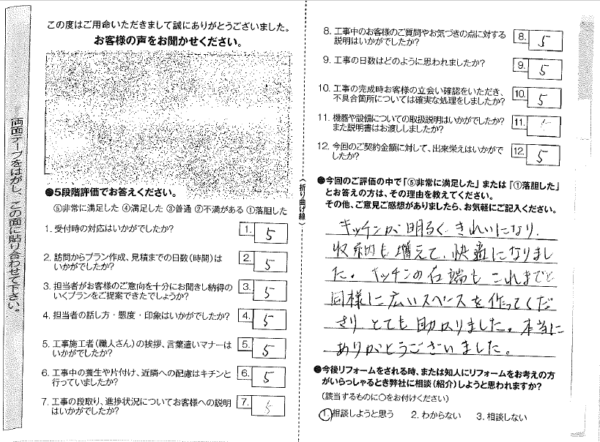 この度はご用命いただきまして誠にありがとうございました。
お客様の声をお聞かせください。
両面テープをはがし、この面に貼り合わせて下さい。
●5段階評価でお答えください。
⑤非常に満足した ④満足した ③普通 ②不満がある ①落胆した
1. 受付時の対応はいかがでしたか?
1. 5
2. 訪問からプラン作成、見積までの日数(時間)は
いかがでしたか?
2. 5
3. 担当者がお客様のご意向を十分にお聞きし納得の
いくプランをご提案できたでしょうか?
3. 5
4. 担当者の話し方・態度・印象はいかがでしたか?
4. 5
5. 工事施工者(職人さん)の挨拶、言葉遣いマナーは
いかがでしたか?
5. 5
6. 工事中の養生や片付け、近隣への配慮はキチンと
行っていましたか?
6. 5
7. 工事の段取り、進捗状況についてお客様への説明
はいかがでしたか?
7. 5
(折り曲げ線)
8. 工事中のお客様のご質問やお気づきの点に対する
説明はいかがでしたか?
8. 5
9. 工事の日数はどのように思われましたか?
9. 5
10. 工事の完成時お客様の立会い確認をいただき、
不具合箇所については確実な処理をしましたか?
10. 5
11. 機器や設備についての取扱説明はいかがでしたか?
また説明書はお渡ししましたか?
11.
12. 今回のご契約金額に対して、出来栄えはいかがで
したか?
12. 5
●今回のご評価の中で「⑤非常に満足した」または「①落胆した」
とお答えの方は、その理由を教えてください。
その他、ご意見ご感想がありましたら、お気軽にご記入ください。
キッチンが明るく きれいになり、
収納も増えて、快適になりまし
た。キッチンの右端も これまでと
同様に広いスペースを作ってくだ
さり とても助かりました。本当に
ありがとうございました。
●今後リフォームをされる時、または知人にリフォームをお考えの方
がいらっしゃるとき弊社に相談(紹介)しようと思われますか?
(該当するものに○をお付けください)
1. 相談しようと思う 2. わからない 3. 相談しない